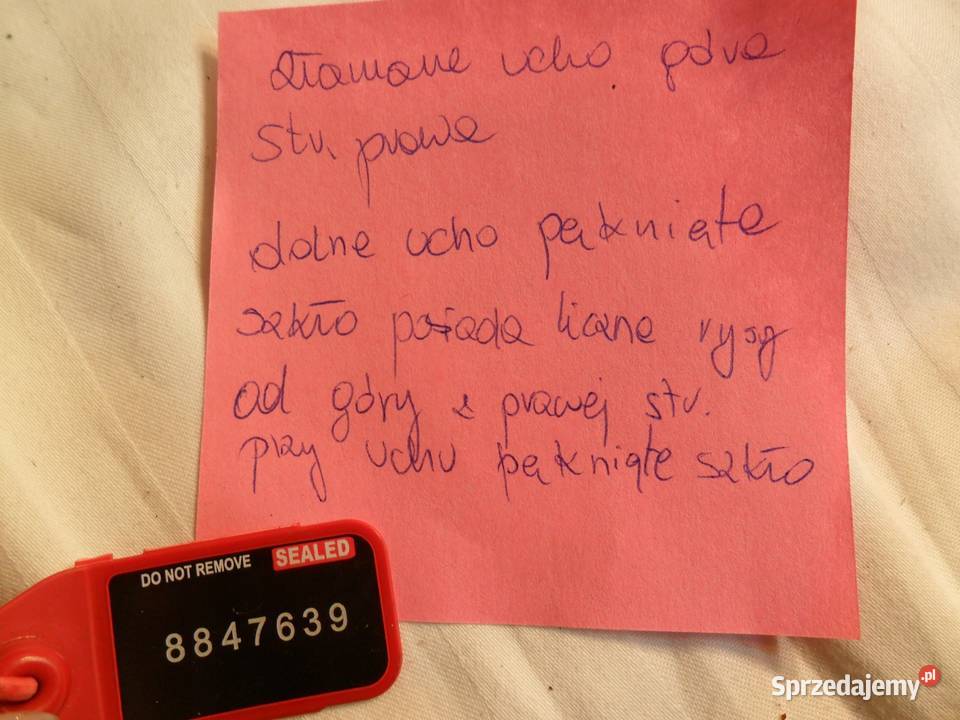 złamane ucho góra
str. prawa
dolne ucho pęknięte
szkło posiada liczne rysy
od góry z prawej str.
przy uchu pęknięte szkło
DO NOT REMOVE SEALED
8847639
Sprzedajemy.pl